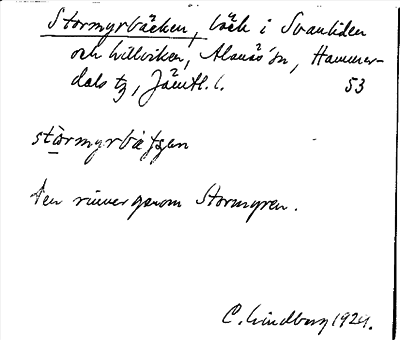 Stormyrbäcken, bäck i Svanliden
och Lillviken, Alanäs sn, Hammer-
dals tg, Jämtl. l. 53
Den rinner genom Stormyren.
C. Lindberg 1924.